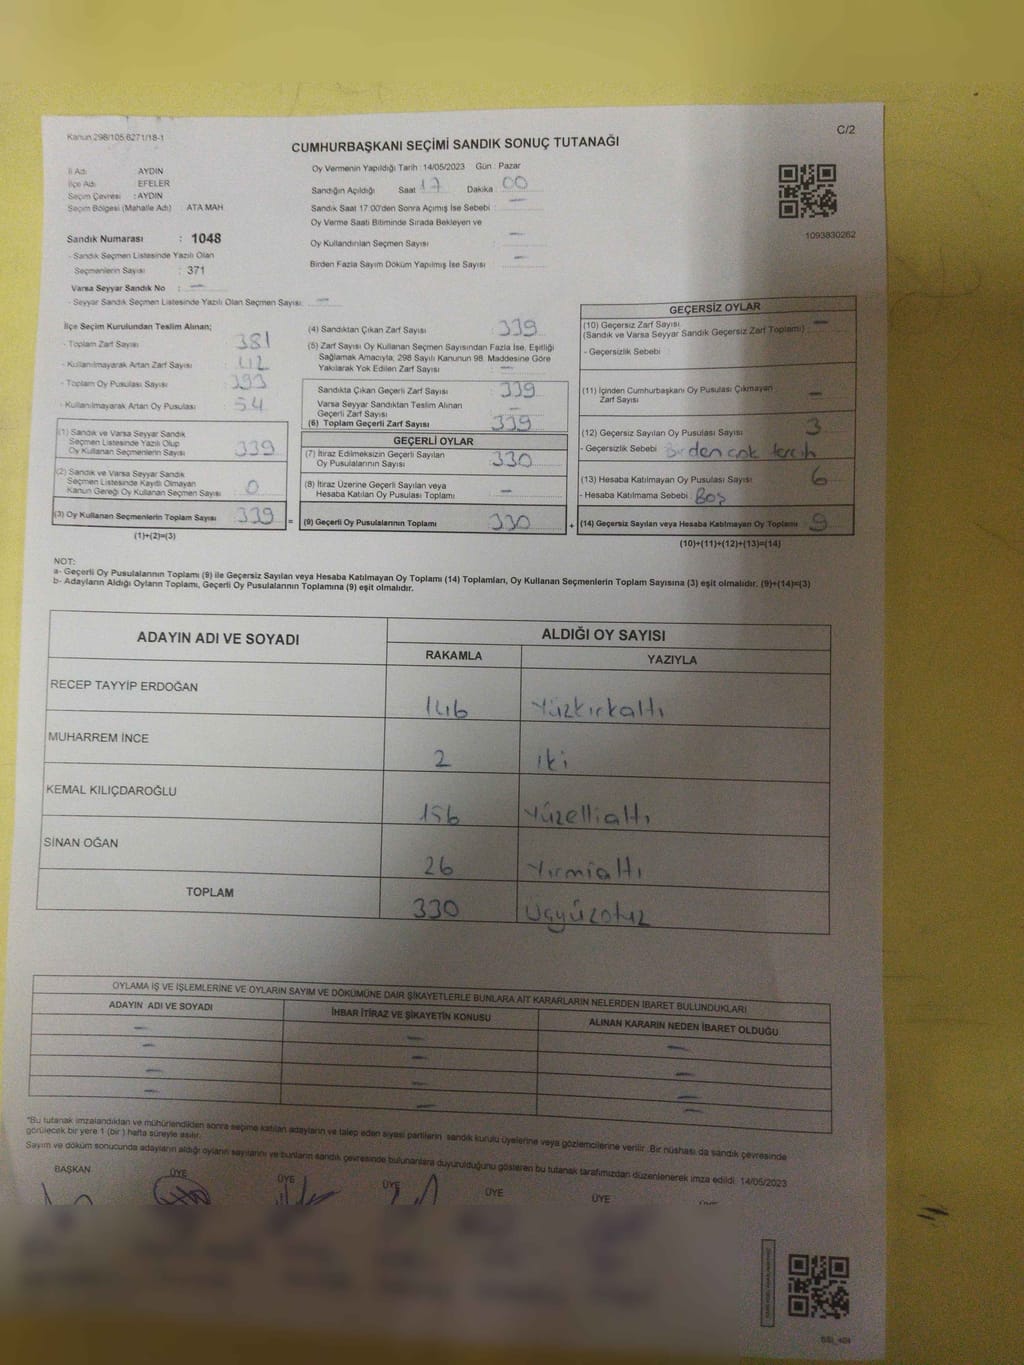 Kanun 298/105,6271/18-1
C/2
CUMHURBAŞKANI SEÇİMİ SANDIK SONUÇ TUTANAĞI
İl Adı AYDIN
İlçe Adı EFELER
Seçim Çevresi : AYDIN
Seçim Bölgesi (Mahalle Adı) ATA MAH
Sandık Numarası : 1048
- Sandık Seçmen Listesinde Yazılı Olan
Seçmenlerin Sayısı : 371
Varsa Seyyar Sandık No : —
- Seyyar Sandık Seçmen Listesinde Yazılı Olan Seçmen Sayısı: —
Oy Vermenin Yapıldığı Tarih : 14/05/2023 Gün : Pazar
Sandığın Açıldığı Saat 17 Dakika 00
Sandık Saat 17:00'den Sonra Açımış İse Sebebi : —
Oy Verme Saati Bitiminde Sırada Bekleyen ve
Oy Kullandırılan Seçmen Sayısı : —
Birden Fazla Sayım Döküm Yapılmış İse Sayısı : —
1093830262
İlçe Seçim Kurulundan Teslim Alınan;
- Toplam Zarf Sayısı : 381
- Kullanılmayarak Artan Zarf Sayısı : 42
- Toplam Oy Pusulası Sayısı : 393
- Kullanılmayarak Artan Oy Pusulası : 54
(1) Sandık ve Varsa Seyyar Sandık
Seçmen Listesinde Yazılı Olup
Oy Kullanan Seçmenlerin Sayısı : 339
(2) Sandık ve Varsa Seyyar Sandık
Seçmen Listesinde Kayıtlı Olmayan
Kanun Gereği Oy Kullanan Seçmen Sayısı : 0
(3) Oy Kullanan Seçmenlerin Toplam Sayısı : 339 =
(1)+(2)=(3)
(4) Sandıktan Çıkan Zarf Sayısı : 339
(5) Zarf Sayısı Oy Kullanan Seçmen Sayısından Fazla İse, Eşitliği
Sağlamak Amacıyla, 298 Sayılı Kanunun 98. Maddesine Göre
Yakılarak Yok Edilen Zarf Sayısı : —
Sandıkta Çıkan Geçerli Zarf Sayısı : 339
Varsa Seyyar Sandıktan Teslim Alınan
Geçerli Zarf Sayısı : —
(6) Toplam Geçerli Zarf Sayısı : 339
GEÇERLİ OYLAR
(7) İtiraz Edilmeksizin Geçerli Sayılan
Oy Pusulalarının Sayısı : 330
(8) İtiraz Üzerine Geçerli Sayılan veya
Hesaba Katılan Oy Pusulası Toplamı : —
(9) Geçerli Oy Pusulalarının Toplamı : 330 +
GEÇERSİZ OYLAR
(10) Geçersiz Zarf Sayısı : —
(Sandık ve Varsa Seyyar Sandık Geçersiz Zarf Toplamı)
- Geçersizlik Sebebi :
(11) İçinden Cumhurbaşkanı Oy Pusulası Çıkmayan : —
Zarf Sayısı
(12) Geçersiz Sayılan Oy Pusulası Sayısı : 3
- Geçersizlik Sebebi : Birden çok tercih
(13) Hesaba Katılmayan Oy Pusulası Sayısı : 6
- Hesaba Katılmama Sebebi : Boş
(14) Geçersiz Sayılan veya Hesaba Katılmayan Oy Toplamı : 9
(10)+(11)+(12)+(13)=(14)
NOT:
a- Geçerli Oy Pusulalarının Toplamı (9) ile Geçersiz Sayılan veya Hesaba Katılmayan Oy Toplamı (14) Toplamları, Oy Kullanan Seçmenlerin Toplam Sayısına (3) eşit olmalıdır. (9)+(14)=(3)
b- Adayların Aldığı Oyların Toplamı, Geçerli Oy Pusulalarının Toplamına (9) eşit olmalıdır.
ADAYIN ADI VE SOYADI ALDIĞI OY SAYISI
RAKAMLA YAZIYLA
RECEP TAYYİP ERDOĞAN 146 Yüzkırkaltı
MUHARREM İNCE 2 iki
KEMAL KILIÇDAROĞLU 156 Yüzellialtı
SİNAN OĞAN 26 Yirmialtı
TOPLAM 330 Üçyüzotuz
OYLAMA İŞ VE İŞLEMLERİNE VE OYLARIN SAYIM VE DÖKÜMÜNE DAİR ŞİKAYETLERLE BUNLARA AİT KARARLARIN NELERDEN İBARET BULUNDUKLARI
ADAYIN ADI VE SOYADI İHBAR İTİRAZ VE ŞİKAYETİN KONUSU ALINAN KARARIN NEDEN İBARET OLDUĞU
— — —
— — —
— — —
— — —
*Bu tutanak imzalandıktan ve mühürlendikten sonra seçime katılan adayların ve talep eden siyasi partilerin sandık kurulu üyelerine veya gözlemcilerine verilir. Bir nüshası da sandık çevresinde
görülecek bir yere 1 (bir) hafta süreyle asılır.
Sayım ve döküm sonucunda adayların aldığı oyların sayılarını ve bunların sandık çevresinde bulunanlara duyurulduğunu gösteren bu tutanak tarafımızdan düzenlenerek imza edildi. 14/05/2023
BAŞKAN ÜYE ÜYE ÜYE ÜYE ÜYE